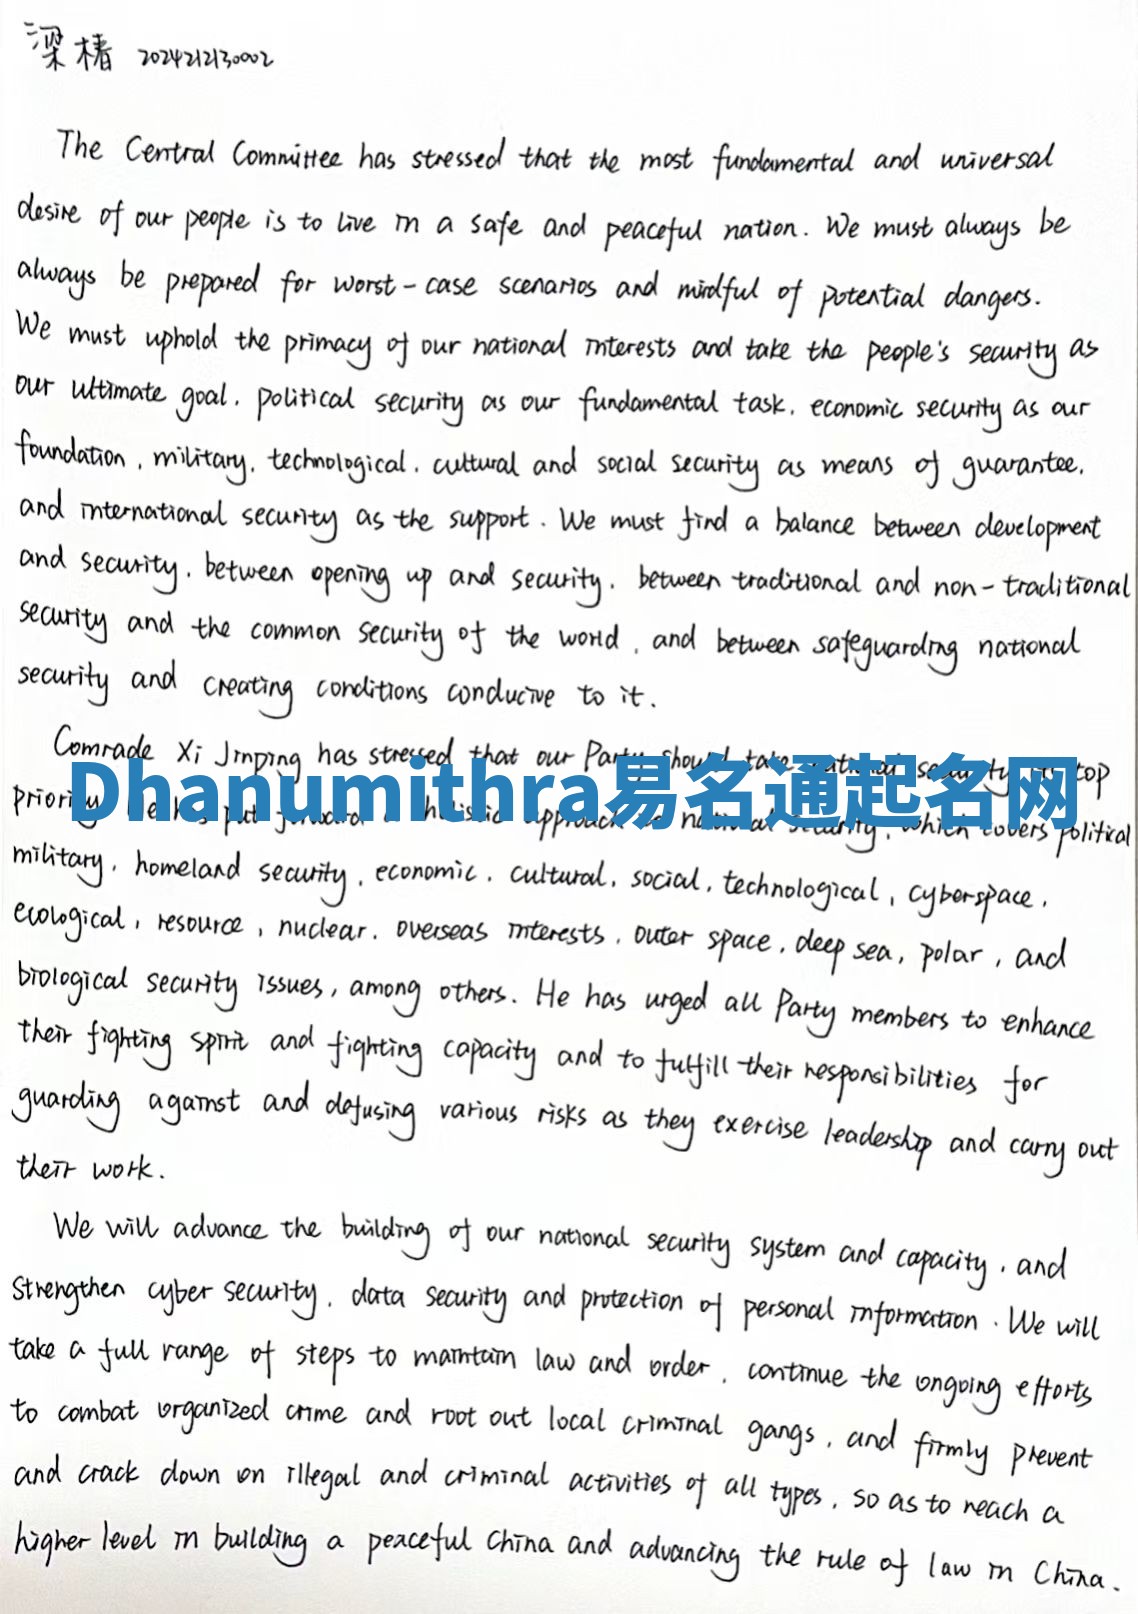 梁椿 2024212130002
The Central Committee has stressed that the most fundamental and universal
desire of our people is to live in a safe and peaceful nation. We must always be
always be prepared for worst-case scenarios and mindful of potential dangers.
We must uphold the primacy of our national interests and take the people's security as
our ultimate goal, political security as our fundamental task, economic security as our
foundation, military, technological, cultural and social security as means of guarantee,
and international security as the support. We must find a balance between development
and security, between opening up and security, between traditional and non-traditional
security and the common security of the world, and between safeguarding national
security and creating conditions conducive to it.
Comrade Xi Jinping has stressed that our Party should take national security top
Dhanumithra易名通起名网
priority put forward holistic approach national security, which covers political
military, homeland security, economic, cultural, social, technological, cyberspace,
ecological, resource, nuclear, overseas interests, outer space, deep sea, polar, and
biological security issues, among others. He has urged all Party members to enhance
their fighting spirit and fighting capacity and to fulfill their responsibilities for
guarding against and defusing various risks as they exercise leadership and carry out
their work.
We will advance the building of our national security system and capacity, and
strengthen cyber security, data security and protection of personal information. We will
take a full range of steps to maintain law and order, continue the ongoing efforts
to combat organized crime and root out local criminal gangs, and firmly prevent
and crack down on illegal and criminal activities of all types, so as to reach a
higher level in building a peaceful China and advancing the rule of law in China.